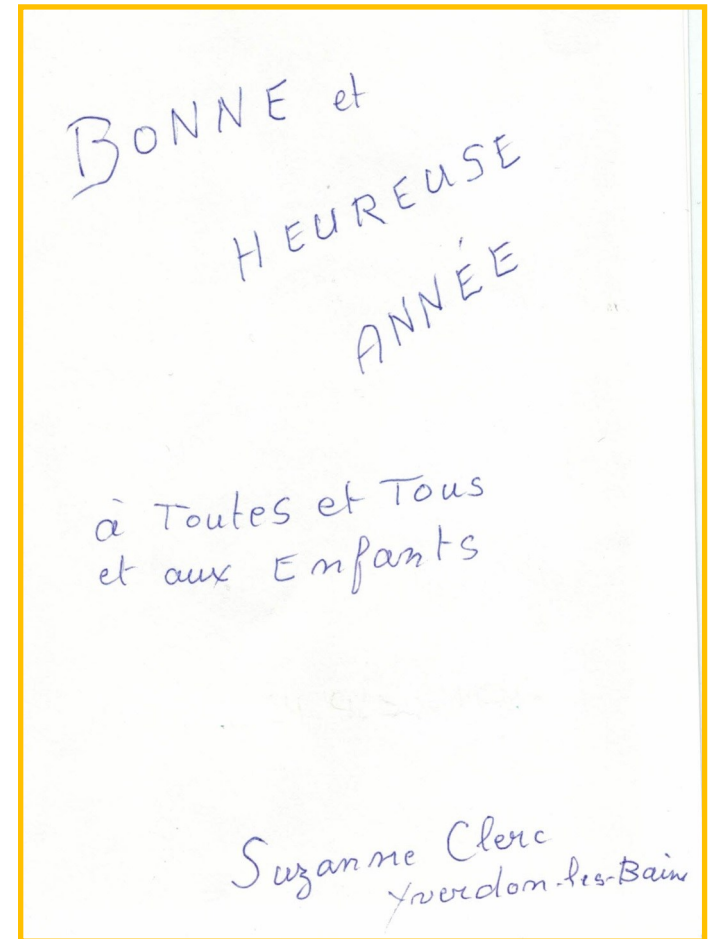 BONNE et
HEUREUSE
ANNÉE
à Toutes et Tous
et aux Enfants
Suzanne Clerc
Yverdon-les-Bains